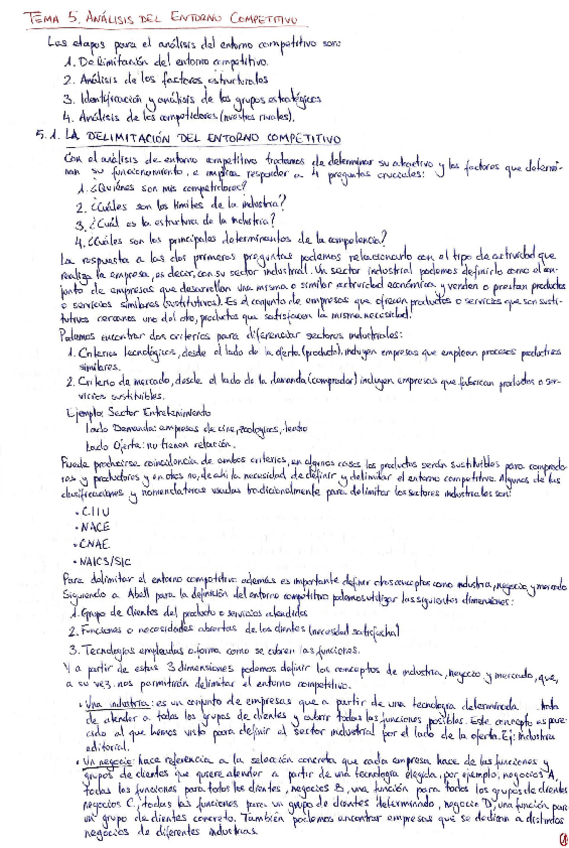 TEMA 5. ANÁLISIS DEL ENTORNO COMPETITIVO
Las etapas para el análisis del entorno competitivo son:
1. Delimitación del entorno competitivo.
2. Análisis de los factores estructurales
3. Identificación y análisis de los grupos estratégicos
4. Análisis de los competidores (nuestros rivales).
5.1. LA DELIMITACIÓN DEL ENTORNO COMPETITIVO
Con el análisis de entorno competitivo tratamos de determinar su atractivo y los factores que determi-
nan su funcionamiento, e implica responder a 4 preguntas cruciales:
1. ¿Quiénes son mis competidores?
2. ¿Cuáles son los límites de la industria?
3. ¿Cuál es la estructura de la industria?
4. ¿Cuáles son los principales determinantes de la competencia?
La respuesta a las dos primeras preguntas podemos relacionarlo con el tipo de actividad que
realiza la empresa, es decir, con su sector industrial. Un sector industrial podemos definirlo como el con-
junto de empresas que desarrollan una misma o similar actividad económica y venden o prestan productos
o servicios similares (sustitutivos). Es el conjunto de empresas que ofrecen productos o servicios que son susti-
tutivos cercanos uno del otro, productos que satisfacen la misma necesidad.
Podemos encontrar dos criterios para diferenciar sectores industriales:
1. Criterios tecnológicos, desde el lado de la oferta (producto), incluyen empresas que emplean procesos productivos
similares.
2. Criterio de mercado, desde el lado de la demanda (comprador) incluyen empresas que fabrican productos o ser-
vicios sustituibles.
Ejemplo: Sector Entretenimiento
Lado Demanda: empresas de cine, zoológicos, teatro
Lado Oferta: no tienen relación.
Puede producirse coincidencia de ambos criterios, en algunos casos los productos serán sustituibles para comprado-
res y productores y en otros no, de ahí la necesidad de definir y delimitar el entorno competitivo. Algunos de las
clasificaciones y nomenclaturas usadas tradicionalmente para delimitar los sectores industriales son:
• CIIU
• NACE
• CNAE
• NAICS/SIC
Para delimitar el entorno competitivo además es importante definir otros conceptos como industria, negocio y mercado
Siguiendo a Abell para la definición del entorno competitivo podemos utilizar las siguientes dimensiones:
1. Grupo de Clientes del producto o servicios atendidos
2. Funciones o necesidades cubiertas de los clientes (necesidad satisfecha)
3. Tecnologías empleadas o forma como se cubren las funciones.
Y a partir de estas 3 dimensiones podemos definir los conceptos de industria, negocio y mercado, que,
a su vez nos permitirán delimitar el entorno competitivo.
• Una industria: es un conjunto de empresas que a partir de una tecnología determinada trata
de atender a todos los grupos de clientes y cubrir todas las funciones posibles. Este concepto es pare-
cido al que hemos visto para definir el sector industrial por el lado de la oferta. Ej: Industria
editorial.
• Un negocio: hace referencia a la selección concreta que cada empresa hace de las funciones y
grupos de clientes que quiere atender a partir de una tecnología elegida, por ejemplo, negocios A,
todas las funciones para todos los clientes, negocios B, una función para todos los grupos de clientes
negocios C, todas las funciones para un grupo de clientes determinado, negocio D, una función para
un grupo de clientes concreto. También podemos encontrar empresas que se dedican a distintos
negocios de diferentes industrias.